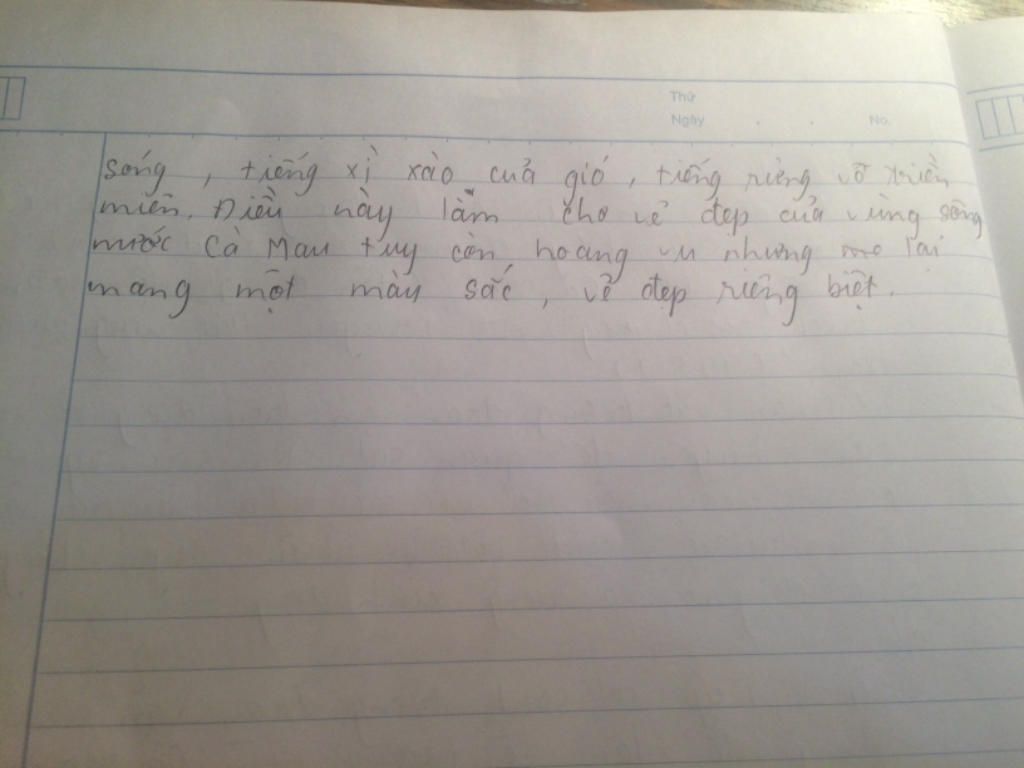 Thứ
Ngày . . No.
sóng , tiếng xì xào của gió , tiếng riêng vỗ triền
miên. Điều này làm cho vẻ đẹp của vùng sông
nước Cà Mau tuy còn hoang vu nhưng lại
mang một mày sắc , vẻ đẹp riêng biệt .